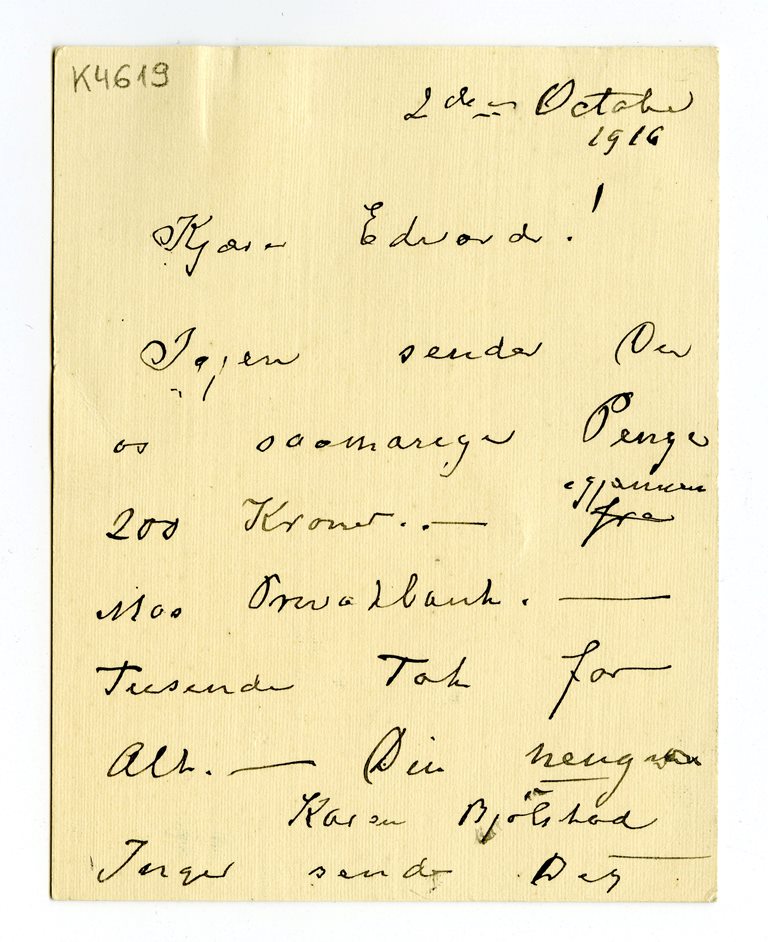 K4619
2den October
1916
Kjære Edvard.!
Igjen sender Du
os saamange Penge
egjennem
200 Kroner..— fra
Mos Privatbank. —
Tusende Tak for
Alt. — Din hengivne
Karen Bjölstad
Inger sende Deg